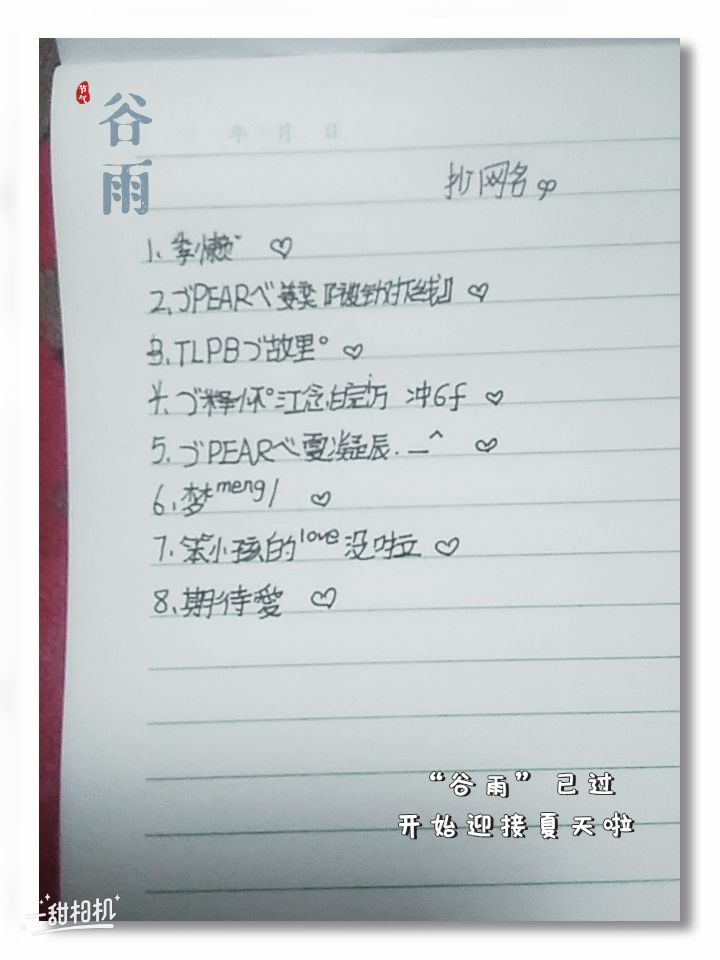 节气
谷雨
年 月 日
抄网名
1、季懒 ♡
2、ゴPEARべ 『被针对专线』 ♡
3、TLPBゴ故里° ♡
4、ゴ释怀°江念 冲6f ♡
5、ゴPEARべ凝辰._^ ♡
6、梦meng/ ♡
7、笨小孩的love没啦 ♡
8、期待愛 ♡
“谷雨”已过
开始迎接夏天啦
一甜相机